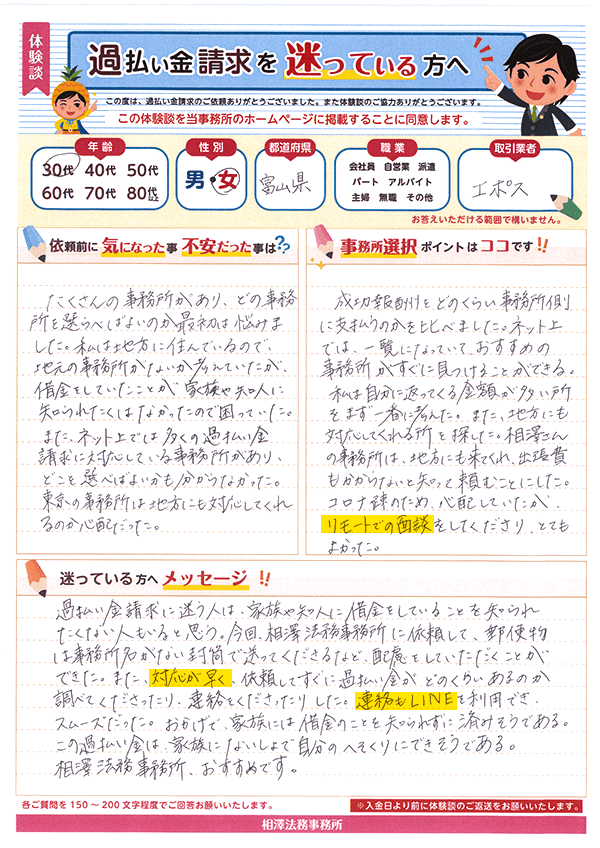 体験談
過払い金請求を迷っている方へ
この度は、過払い金請求のご依頼ありがとうございました。また体験談のご協力ありがとうございます。
この体験談を当事務所のホームページに掲載することに同意します。
年齢
30代 40代 50代
60代 70代 80代以上
性別
男・女
都道府県
富山県
職業
会社員 自営業 派遣
パート アルバイト
主婦 無職 その他
取引業者
エポス
お答えいただける範囲で構いません。
依頼前に気になった事 不安だった事は??
たくさんの事務所があり、どの事務
所を選らべばよいのか最初は悩みま
した。私は地方に住んでいるので、
地元の事務所がないか考えていたが、
借金をしていたことが家族や知人に
知られたくはなかったので困っていた。
また、ネット上では多くの過払い金
請求に対応している事務所があり、
どこを選べばよいかも分からなかった。
東京の事務所は地方にも対応してくれ
るのか心配だった。
事務所選択ポイントはココです!!
成功報酬をどのくらい事務所側
に支払うのかを比べました。ネット上
では、一覧になっていて、おすすめの
事務所がすぐに見つけることができる。
私は自分に返ってくる金額が多い所
をまず一番に考えた。また、地方にも
対応してくれる所を探した。相澤さん
の事務所は、地方にも来てくれ、出張費
もかからないと知って頼むことにした。
コロナ禍のため、心配していたが、
リモートでの面談をしてくださり、とても
よかった。
迷っている方へメッセージ!!
過払い金請求に迷う人は、家族や知人に借金をしていることを知られ
たくない人もいると思う。今回、相澤法務事務所に依頼して、郵便物
は事務所名がない封筒で送ってくださるなど、配慮をしていただくことが
できた。また、対応が早く、依頼してすぐに過払い金がどのくらいあるのか
調べてくださったり、連絡をくださったりした。連絡もLINEを利用でき、
スムーズだった。おかげで、家族には借金のことを知られずに済みそうである。
この過払い金は、家族にないしょで自分のへそくりにできそうである。
相澤法務事務所、おすすめです。
各ご質問を150~200文字程度でご回答お願いいたします。
※入金日より前に体験談のご返送をお願いいたします。
相澤法務事務所